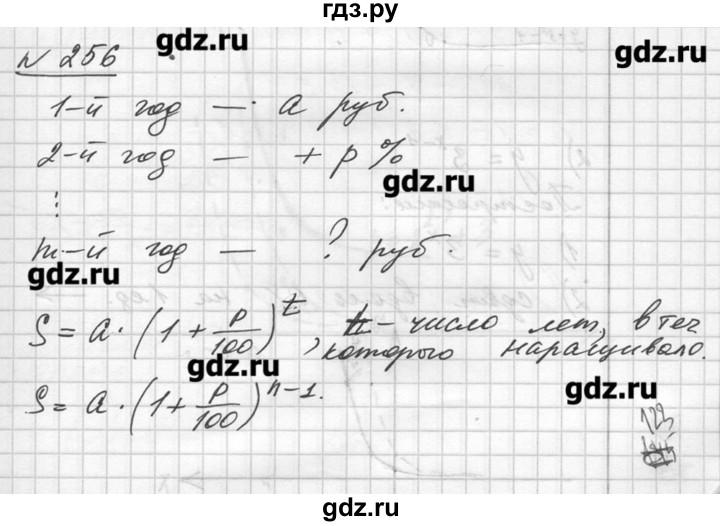 гдз.ру
gdz.ru
gdz.ru
N 256
1-й год — a руб.
2-й год — + p %
gdz.ru
⋮
m-й год — ? руб.
gdz.ru
S = a · (1 + p/100)^t, t – число лет, в теч
которого наращивало.
gdz.ru
S = a · (1 + p/100)^n-1.
gdz.ru
123
gdz.ru